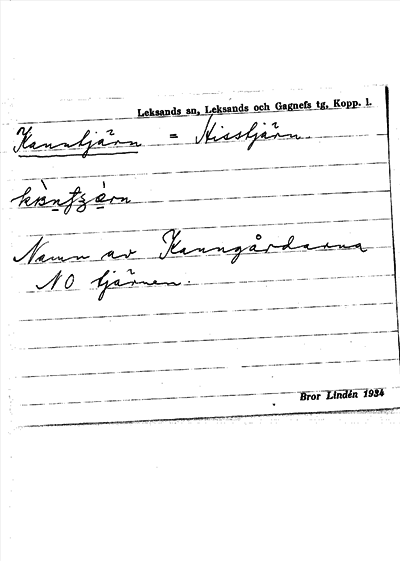 Leksands sn, Leksands och Gagnefs tg, Kopp. l.
Kanntjärn = Hisstjärn
Namn av Kanngårdarna
NO tjärnen.
Bror Lindén 1934